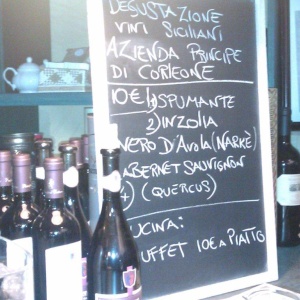 DEGUSTAZIONE
VINI SICILIANI
AZIENDA PRINCIPE
DI CORLEONE
10€ 1) SPUMANTE
2) INZOLIA
NERO D'AVOLA (NARKÈ)
CABERNET SAUVIGNON
(QUERCUS)
CUCINA:
BUFFET 10€ A PIATTO